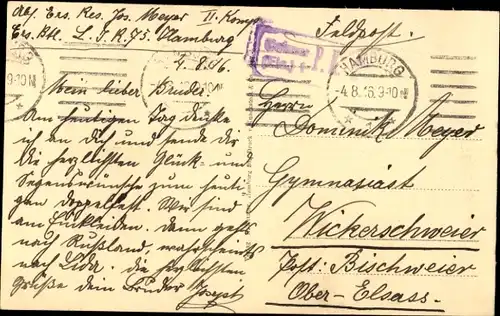 Abs. Ers. Res. Jos. Meyer II. Komp.
Ers. Btl. L. I. R. 75. Hamburg
4. 8. 16
Mein lieber Bruder!
Am heutigen Tag denke
ich an dich und sende dir
die herzlichsten Glück- und
Segenswünsche zum heuti-
gen Doppelfest. Wir sind
am Einkleiden. Dann gehts
nach Rußland, wahrscheinlich
nach Lida. die herzlichsten
Grüße dein Bruder Joseph
Feldpost.
P. K.
HAMBURG
-4.8.16.9-10N
Herrn
Dominik Meyer
Gymnasiast
Wickerschweier
Post: Bischweier
Ober-Elsass.